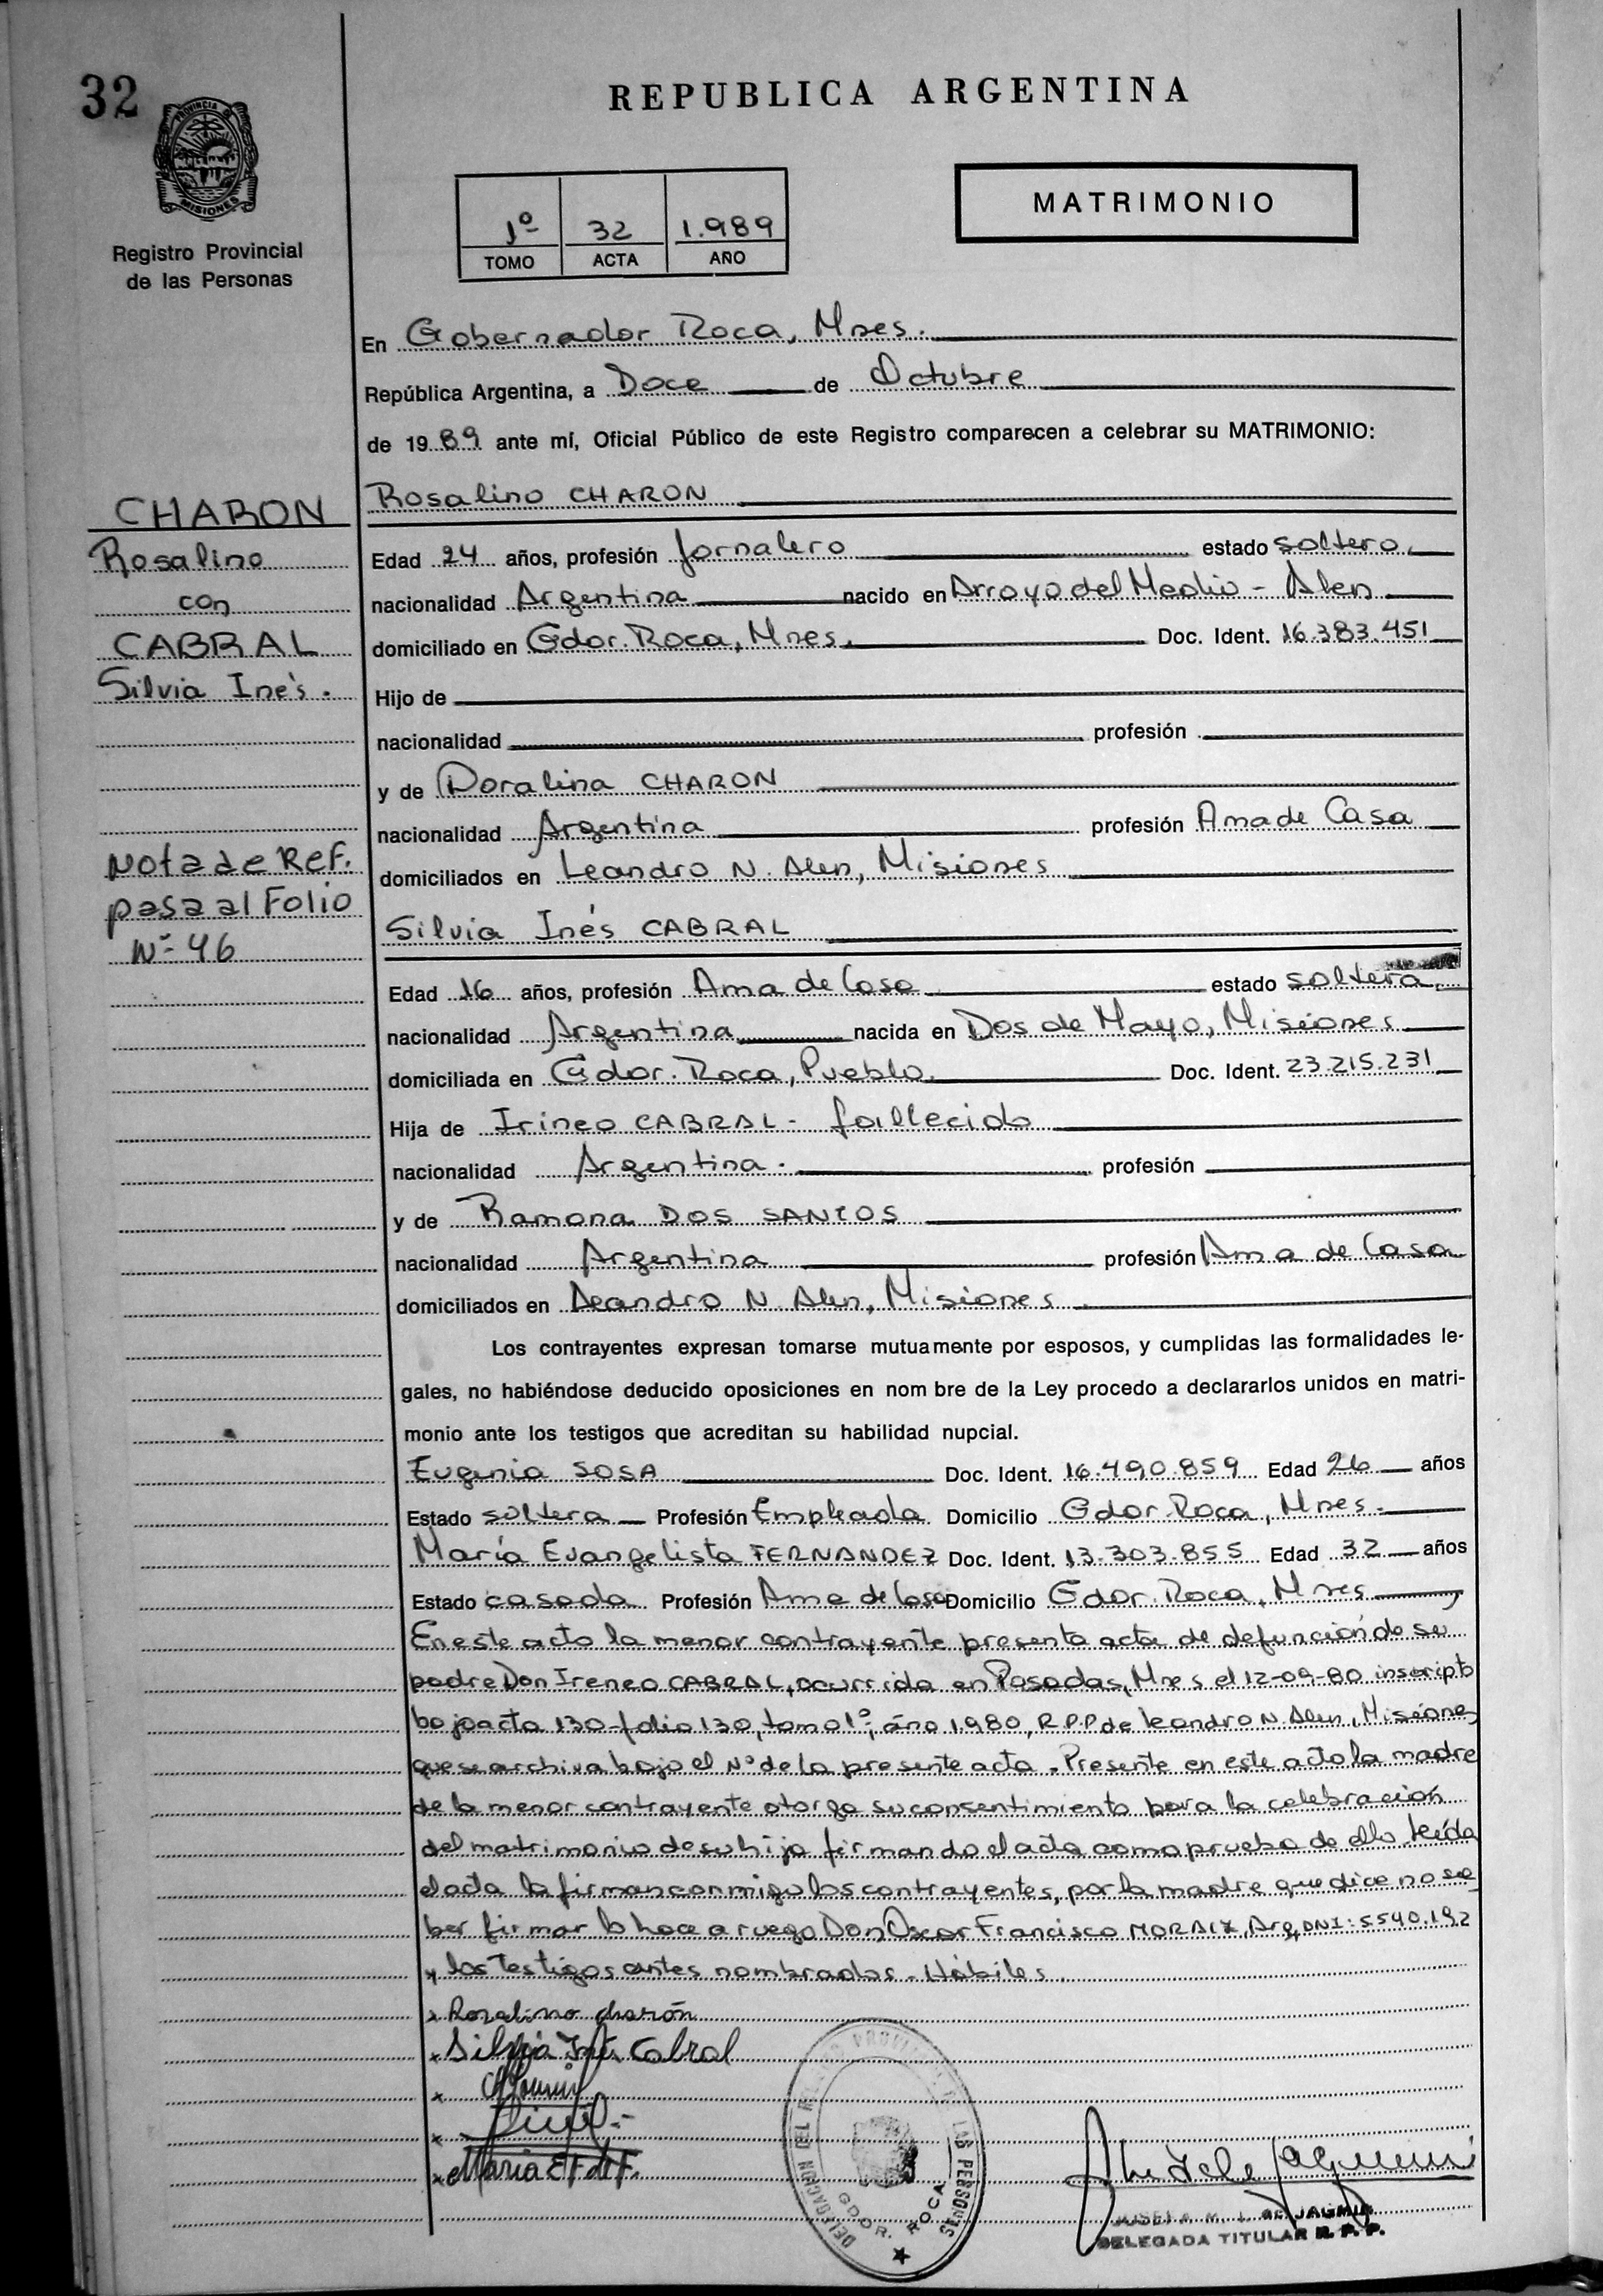 32
PROVINCIA DE
MISIONES
Registro Provincial
de las Personas
REPUBLICA ARGENTINA
1º 32 1.989
TOMO ACTA AÑO
MATRIMONIO
En Gobernador Roca, Mnes.
República Argentina, a Doce de Octubre
de 1989 ante mí, Oficial Público de este Registro comparecen a celebrar su MATRIMONIO:
CHARON
Rosalino
con
CABRAL
Silvia Inés.
Nota de Ref.
pasa al Folio
Nº 46
Rosalino CHARON
Edad 24 años, profesión Jornalero estado soltero.
nacionalidad Argentina nacido en Arroyo del Medio - Alen
domiciliado en Gdor. Roca, Mnes. Doc. Ident. 16.383.451
Hijo de
nacionalidad profesión
y de Doralina CHARON
nacionalidad Argentina profesión Ama de Casa
domiciliados en Leandro N. Alen, Misiones
Silvia Inés CABRAL
Edad 16 años, profesión Ama de Casa estado soltera.
nacionalidad Argentina nacida en Dos de Mayo, Misiones
domiciliada en Gdor. Roca, Pueblo. Doc. Ident. 23.215.231
Hija de Irineo CABRAL - fallecido
nacionalidad Argentina. profesión
y de Ramona DOS SANTOS
nacionalidad Argentina profesión Ama de Casa
domiciliados en Leandro N. Alen, Misiones
Los contrayentes expresan tomarse mutuamente por esposos, y cumplidas las formalidades le-
gales, no habiéndose deducido oposiciones en nom bre de la Ley procedo a declararlos unidos en matri-
monio ante los testigos que acreditan su habilidad nupcial.
Eugenia SOSA Doc. Ident. 16.490.859 Edad 26 años
Estado soltera Profesión Empleada Domicilio Gdor. Roca, Mnes.
María Evangelista FERNANDEZ Doc. Ident. 13.303.855 Edad 32 años
Estado casada Profesión Ama de Casa Domicilio Gdor. Roca, Mnes
En este acto la menor contrayente presenta acta de defunción de su
padre Don Ireneo CABRAL, ocurrida en Posadas, Mnes el 12-09-80 inscripto
bajo acta 130-folio 130, tomo 1º, año 1.980, R.P.P de Leandro N. Alen, Misiones
que se archiva bajo el Nº de la presente acta. Presente en este acto la madre
de la menor contrayente otorga su consentimiento para la celebración
del matrimonio de su hija firmando el acta como prueba de ello. Leída
el acta la firman conmigo los contrayentes, por la madre que dice no sa
ber firmar lo hace a ruego Don Oscar Francisco Arg, DNI: 5540.192
y los testigos antes nombrados. Hábiles.
x Rosalino charón
x Silvia Inés Cabral
x
x
x Maria E F de F.
DELEGACION DEL REGISTRO PROVINCIAL DE LAS PERSONAS
GDOR. ROCA
JOSEFA M. L. de JAGMIN
DELEGADA TITULAR R. P. P.